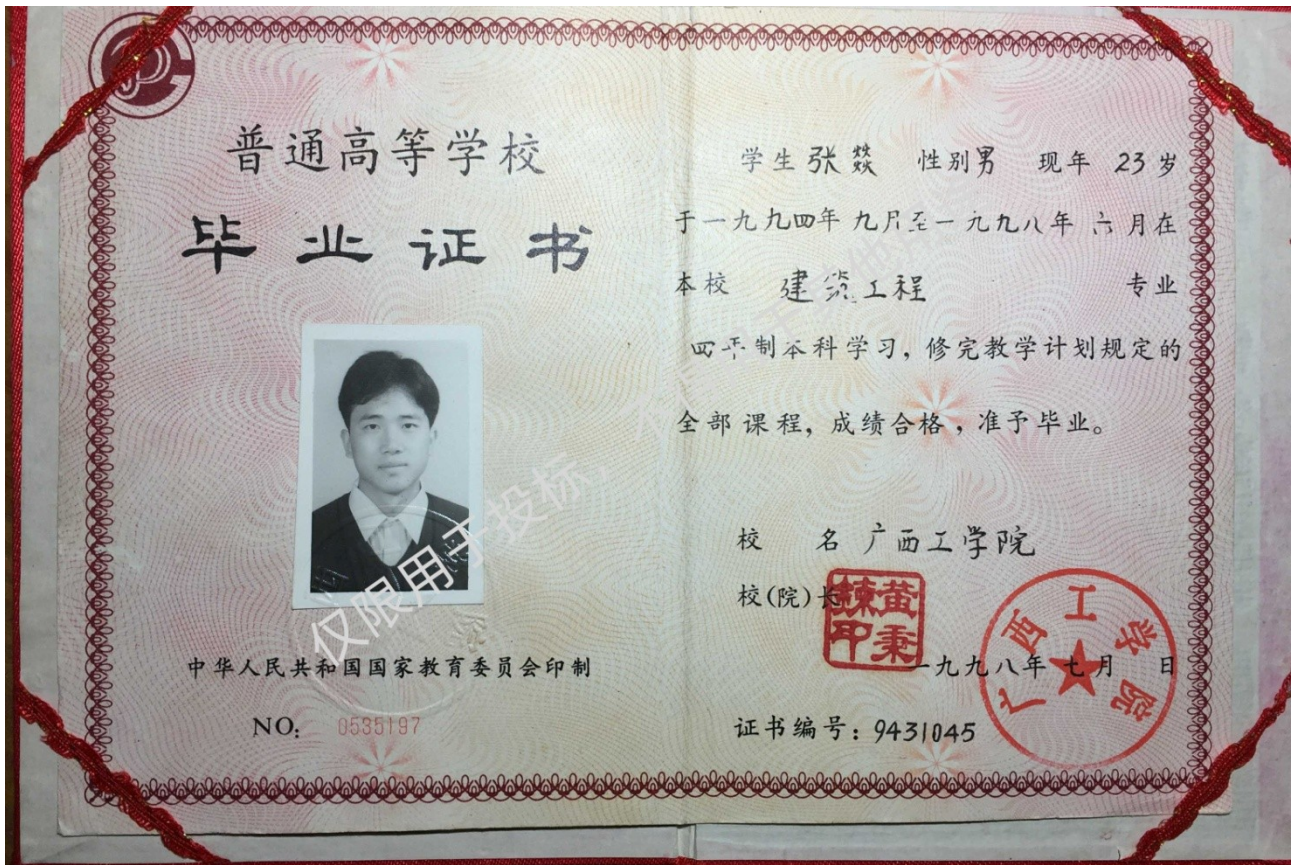 普通高等学校
毕业证书
仅限用于投标,
中华人民共和国国家教育委员会印制
NO: 0535197
学生 张燚 性别 男 现年 23 岁
于一九九四年 九月至一九九八年 六月在
本校 建筑工程 专业
四年制本科学习, 修完教学计划规定的
全部课程, 成绩合格, 准予毕业。
校 名 广西工学院
校(院)长
黄秉
鍊印
一九九八年 七月 日
广西工学院
证书编号: 9431045